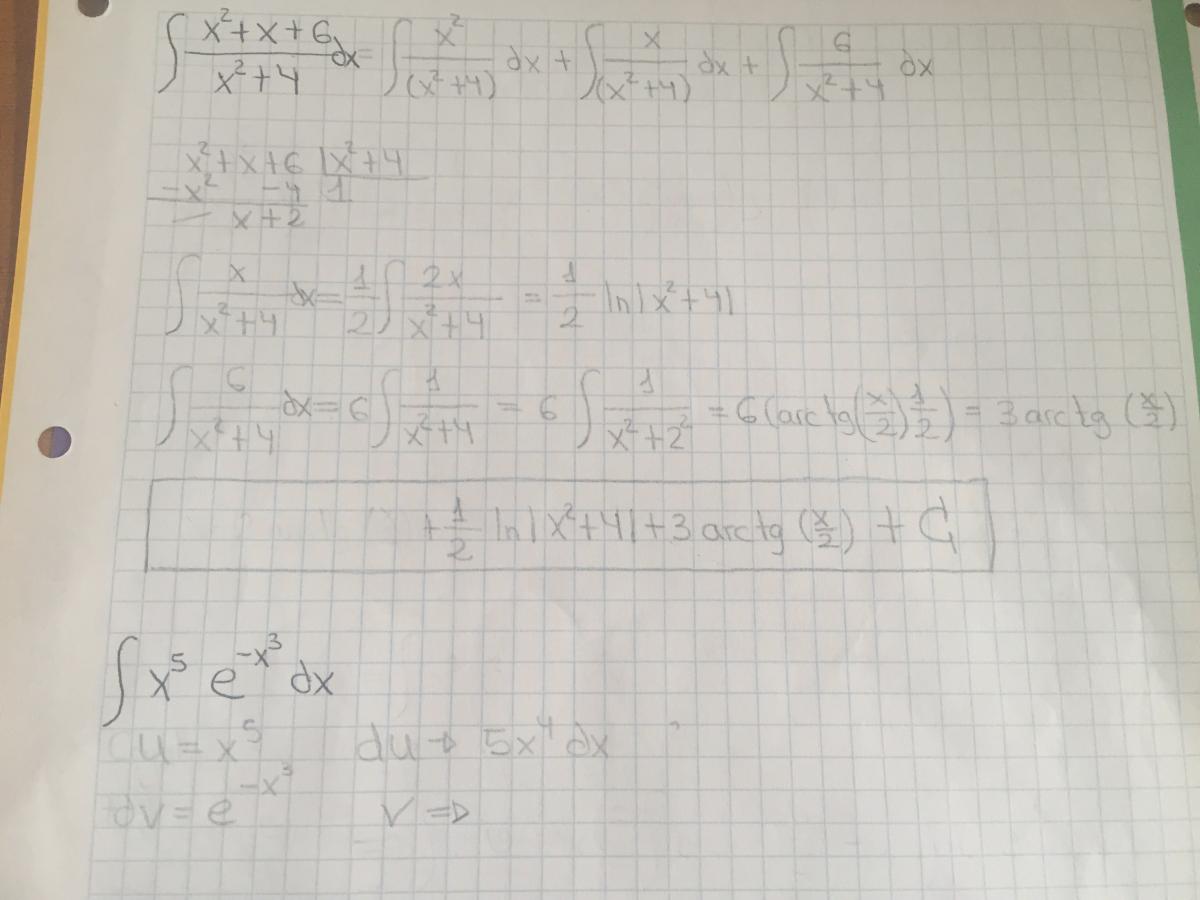 ∫ (x²+x+6)/(x²+4) dx = ∫ x²/(x²+4) dx + ∫ x/(x²+4) dx + ∫ 6/(x²+4) dx
x²+x+6 | x²+4
-x² -4 1
— x+2
∫ x/(x²+4) dx = 1/2 ∫ 2x/(x²+4) = 1/2 ln|x²+4|
∫ 6/(x²+4) dx = 6 ∫ 1/(x²+4) = 6 ∫ 1/(x²+2²) = 6(arctg(x/2) 1/2) = 3 arctg (x/2)
+ 1/2 ln|x²+4| + 3 arctg (x/2) + C
∫ x⁵ e^(-x³) dx
u = x⁵ du → 5x⁴ dx
dv = e^(-x³) v ⇒